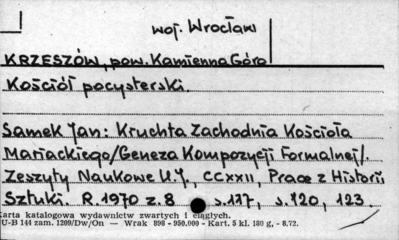 woj. Wrocław
KRZESZÓW, pow. Kamienna Góra
Kościół pocysterski.
Samek Jan: Kruchta Zachodnia Kościoła
Mariackiego/Geneza Kompozycji Formalnej/.
Zeszyty Naukowe UJ, CCXXII, Prace z Historii
Sztuki. R.1970 z.8 s.117, s.120, 123.
Karta katalogowa wydawnictw zwartych i ciągłych.
U-B 144 zam. 1209/Dw/On — Wrak 898 - 950.000 - Kart. 5 kl. 180 g, - 8.72.